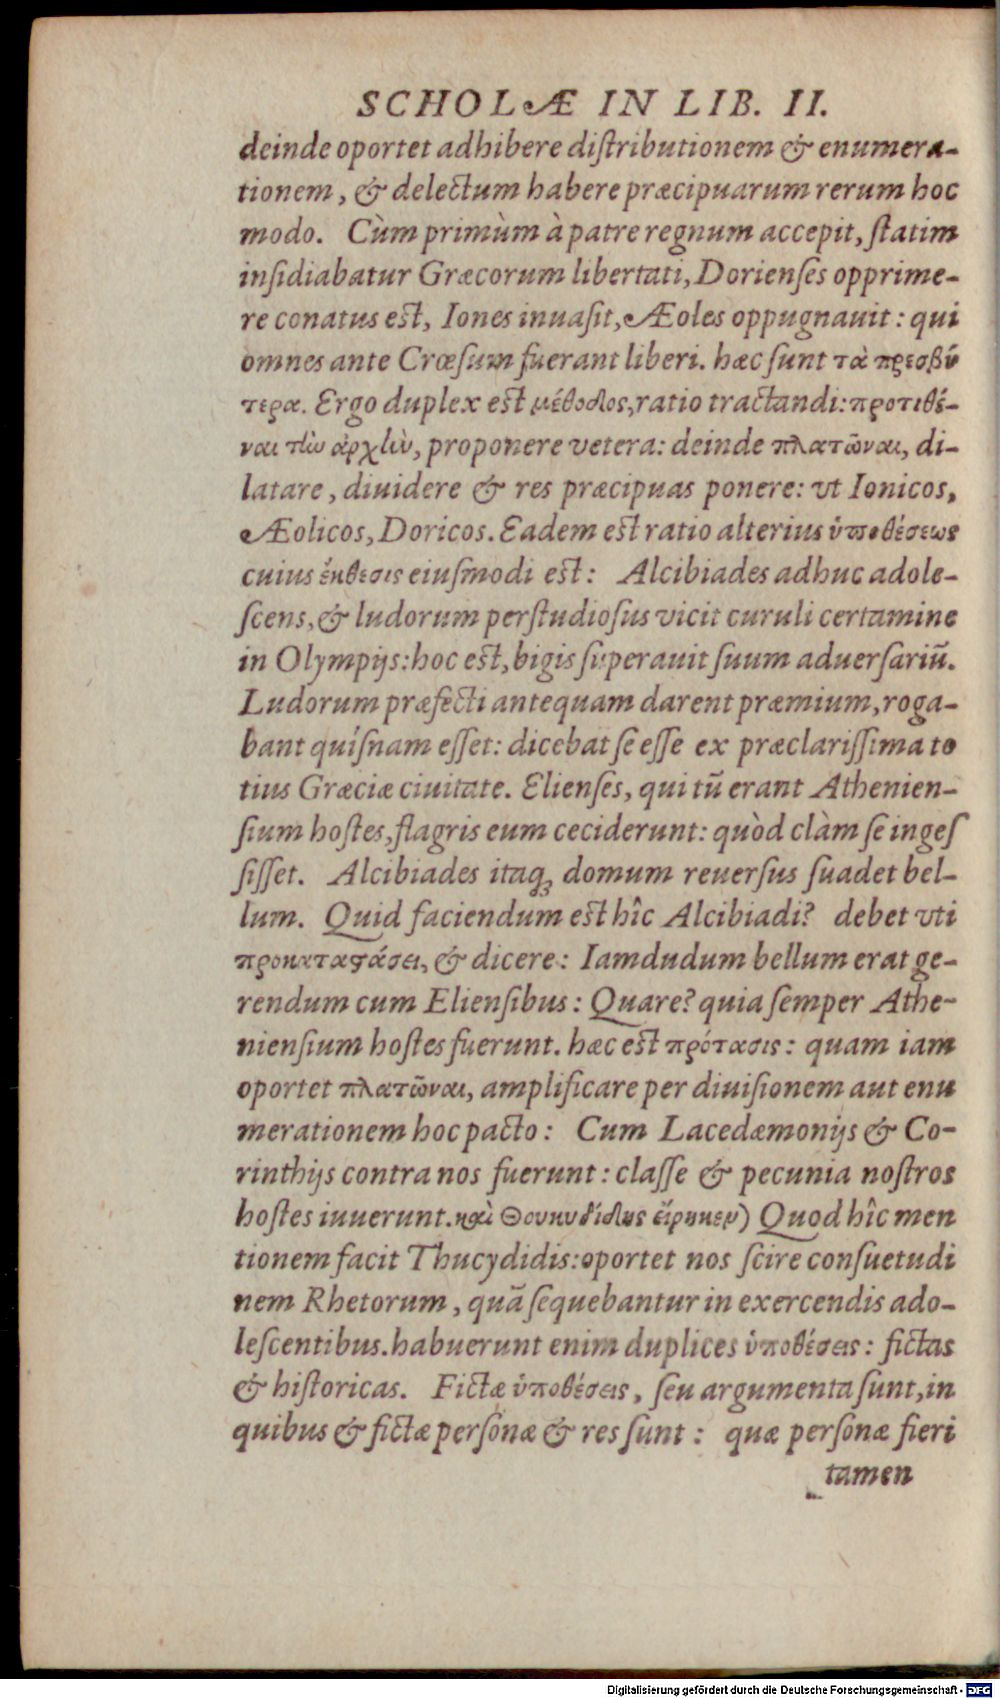 SCHOLÆ IN LIB. II.
deinde oportet adhibere diſtributionem & enumera-
tionem, & delectum habere præcipuarum rerum hoc
modo. Cùm primùm à patre regnum accepit, ſtatim
inſidiabatur Græcorum libertati, Dorienſes opprime-
re conatus eſt, Iones inuaſit, Æoles oppugnauit: qui
omnes ante Crœſum fuerant liberi. hæc ſunt τὰ πρεσβύ
τερα. Ergo duplex eſt μέθοδος, ratio tractandi: προτιθέ-
ναι τὴν ἀρχὴν, proponere vetera: deinde πλατῦναι, di-
latare, diuidere & res præcipuas ponere: vt Ionicos,
Æolicos, Doricos. Eadem eſt ratio alterius ὑποθέσεως
cuius ἔκθεσις eiuſmodi eſt: Alcibiades adhuc adole-
ſcens, & ludorum perſtudioſus vicit curuli certamine
in Olympijs: hoc eſt, bigis ſuperauit ſuum aduerſariũ.
Ludorum præfecti antequam darent præmium, roga-
bant quiſnam eſſet: dicebat ſe eſſe ex præclariſſima to
tius Græciæ ciuitate. Elienſes, qui tũ erant Athenien-
ſium hoſtes, flagris eum ceciderunt: quòd clàm ſe ingeſ
ſiſſet. Alcibiades itaq; domum reuerſus ſuadet bel-
lum. Quid faciendum eſt hîc Alcibiadi? debet vti
προκαταϛάσει, & dicere: Iamdudum bellum erat ge-
rendum cum Elienſibus: Quare? quia ſemper Athe-
nienſium hoſtes fuerunt. hæc eſt πρότασις: quam iam
oportet πλατῦναι, amplificare per diuiſionem aut enu
merationem hoc pacto: Cum Lacedæmonijs & Co-
rinthijs contra nos fuerunt: claſſe & pecunia noſtros
hoſtes iuuerunt. καὶ Θουκυδίδης εἴρηκεν) Quod hîc men
tionem facit Thucydidis: oportet nos ſcire conſuetudi
nem Rhetorum, quã ſequebantur in exercendis ado-
leſcentibus. habuerunt enim duplices ὑποθέσεις: fictas
& hiſtoricas. Fictæ ὑποθέσεις, ſeu argumenta ſunt, in
quibus & fictæ perſonæ & res ſunt: quæ perſonæ fieri
tamen
Digitalisierung gefördert durch die Deutsche Forschungsgemeinschaft - DFG